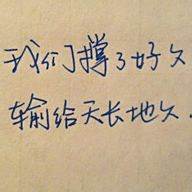 我们撑了好久
输给天长地久.